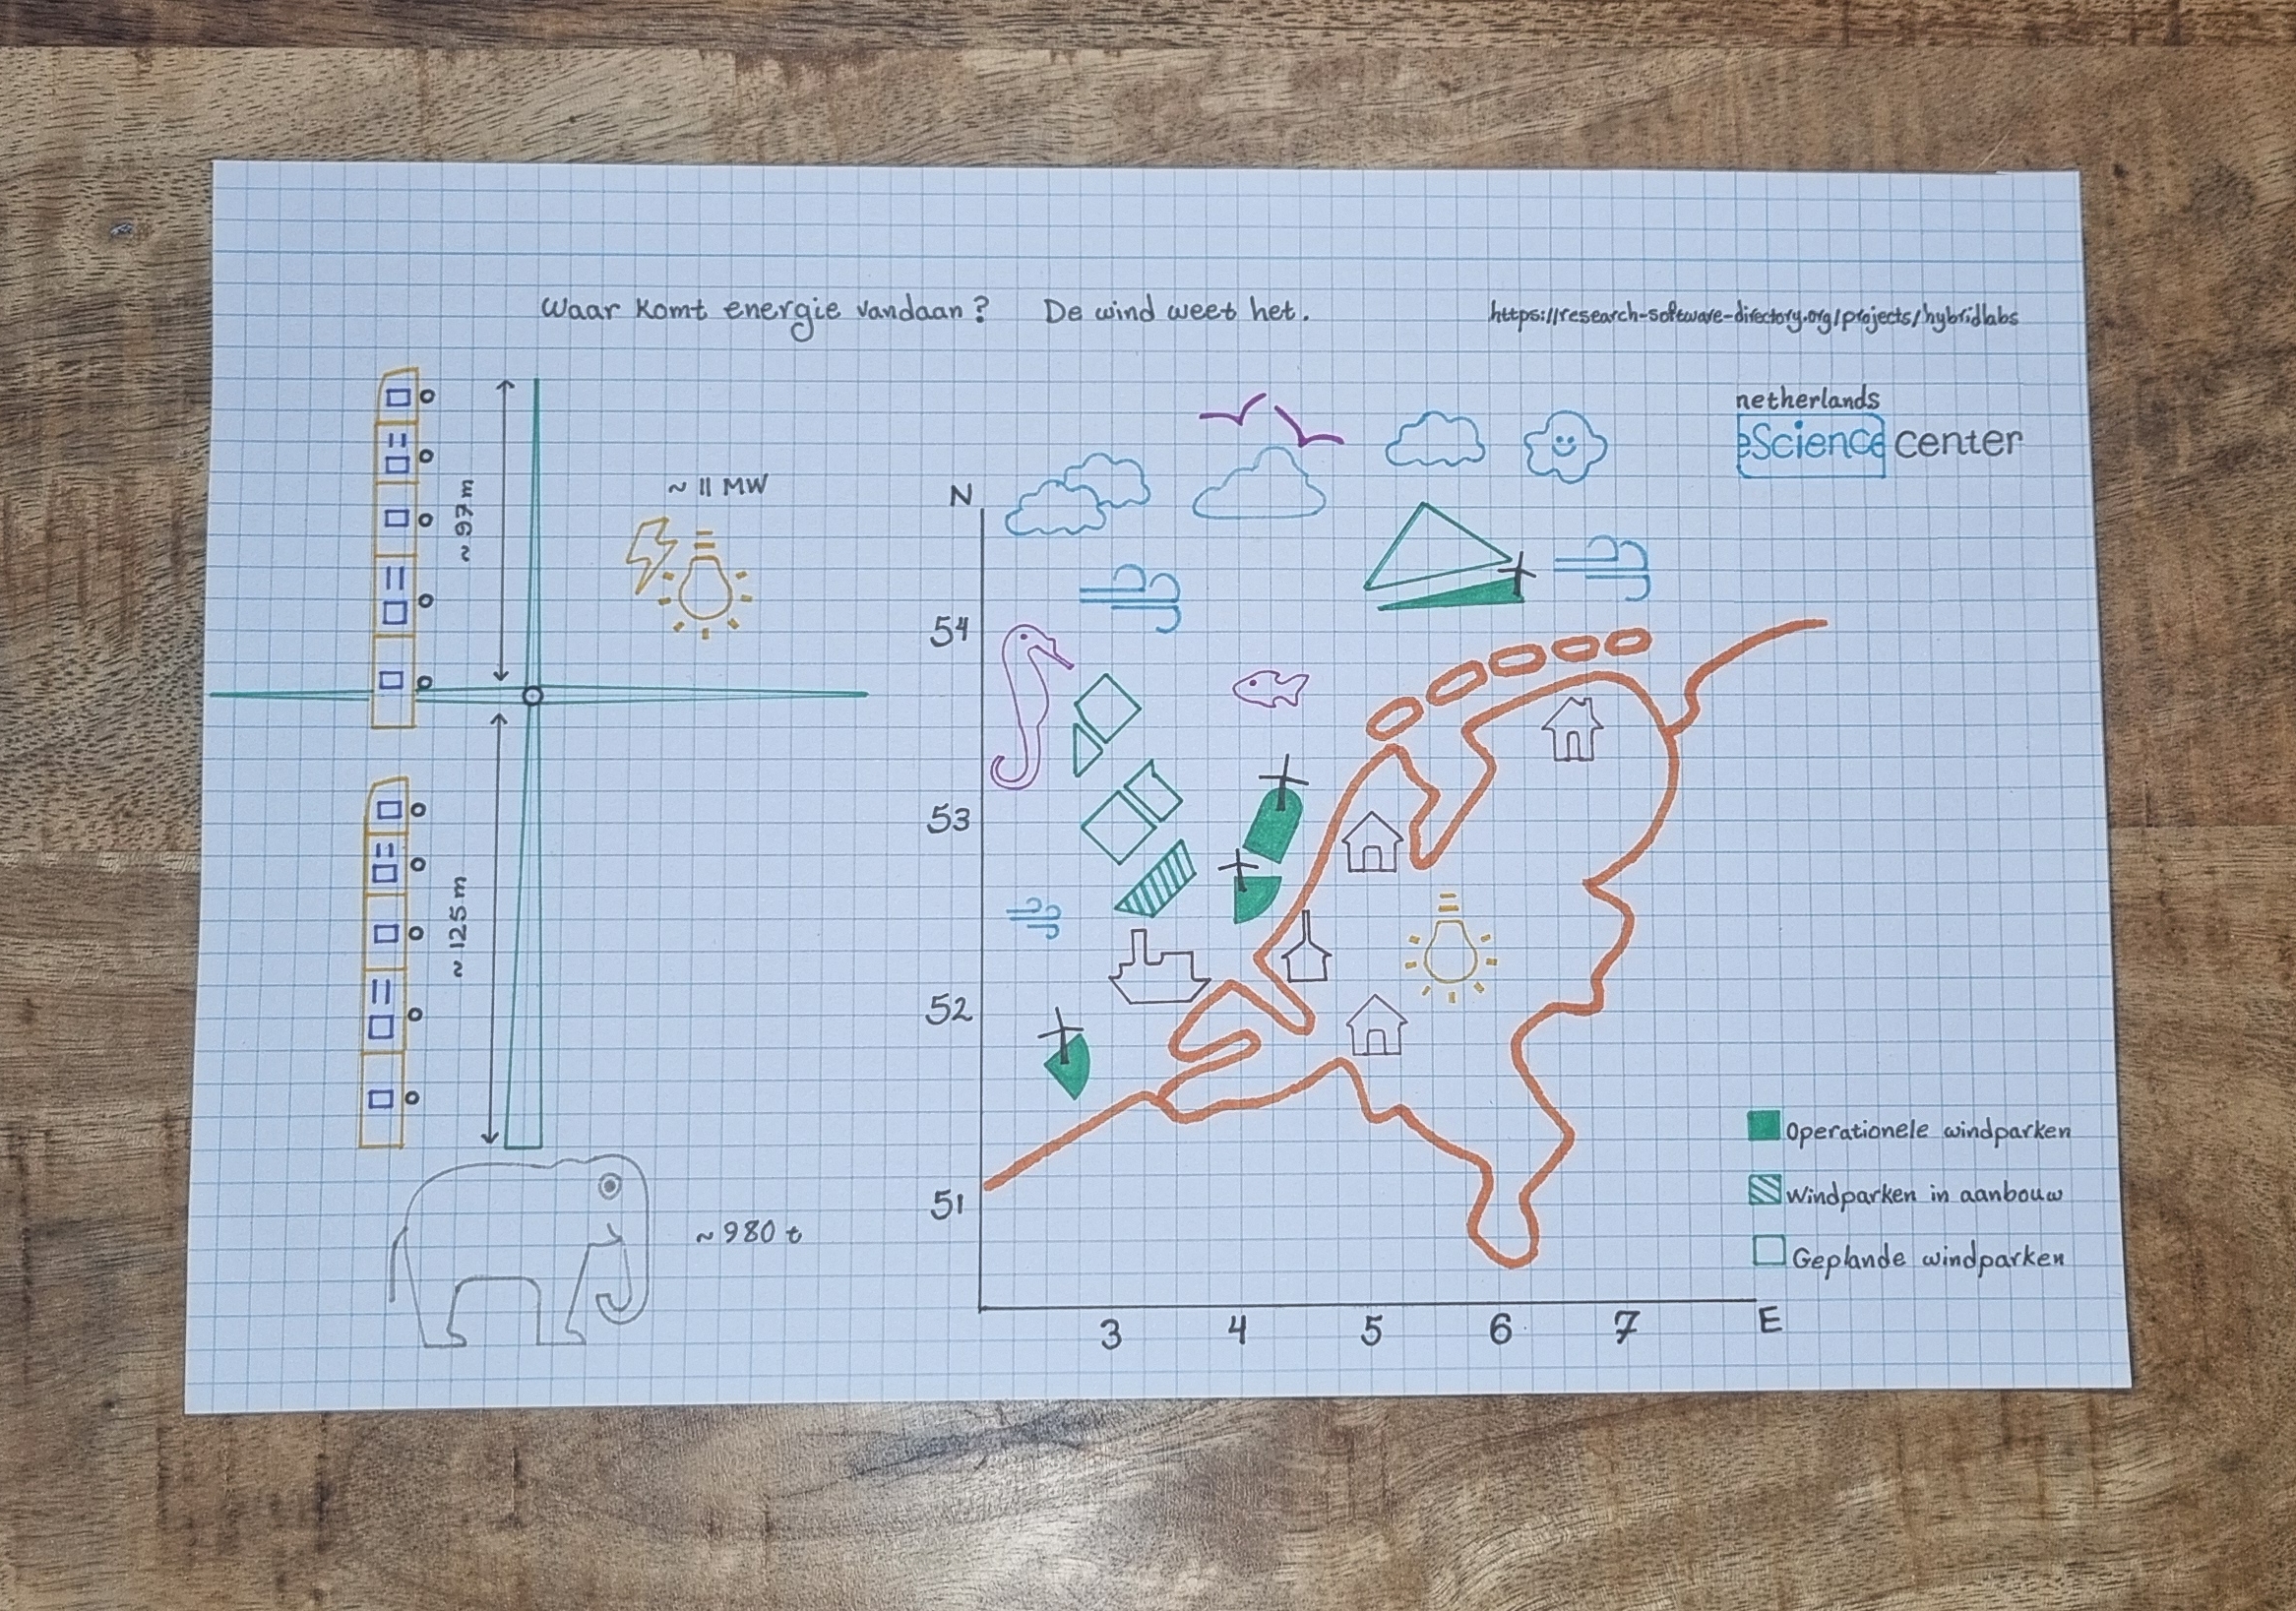 Waar komt energie vandaan? De wind weet het.
https://research-software-directory.org/projects/hybridlabs
netherlands
eScience center
~ 97 m
~ 11 MW
~ 125 m
~ 980 t
N
54
53
52
51
3 4 5 6 7 E
Operationele windparken
Windparken in aanbouw
Geplande windparken